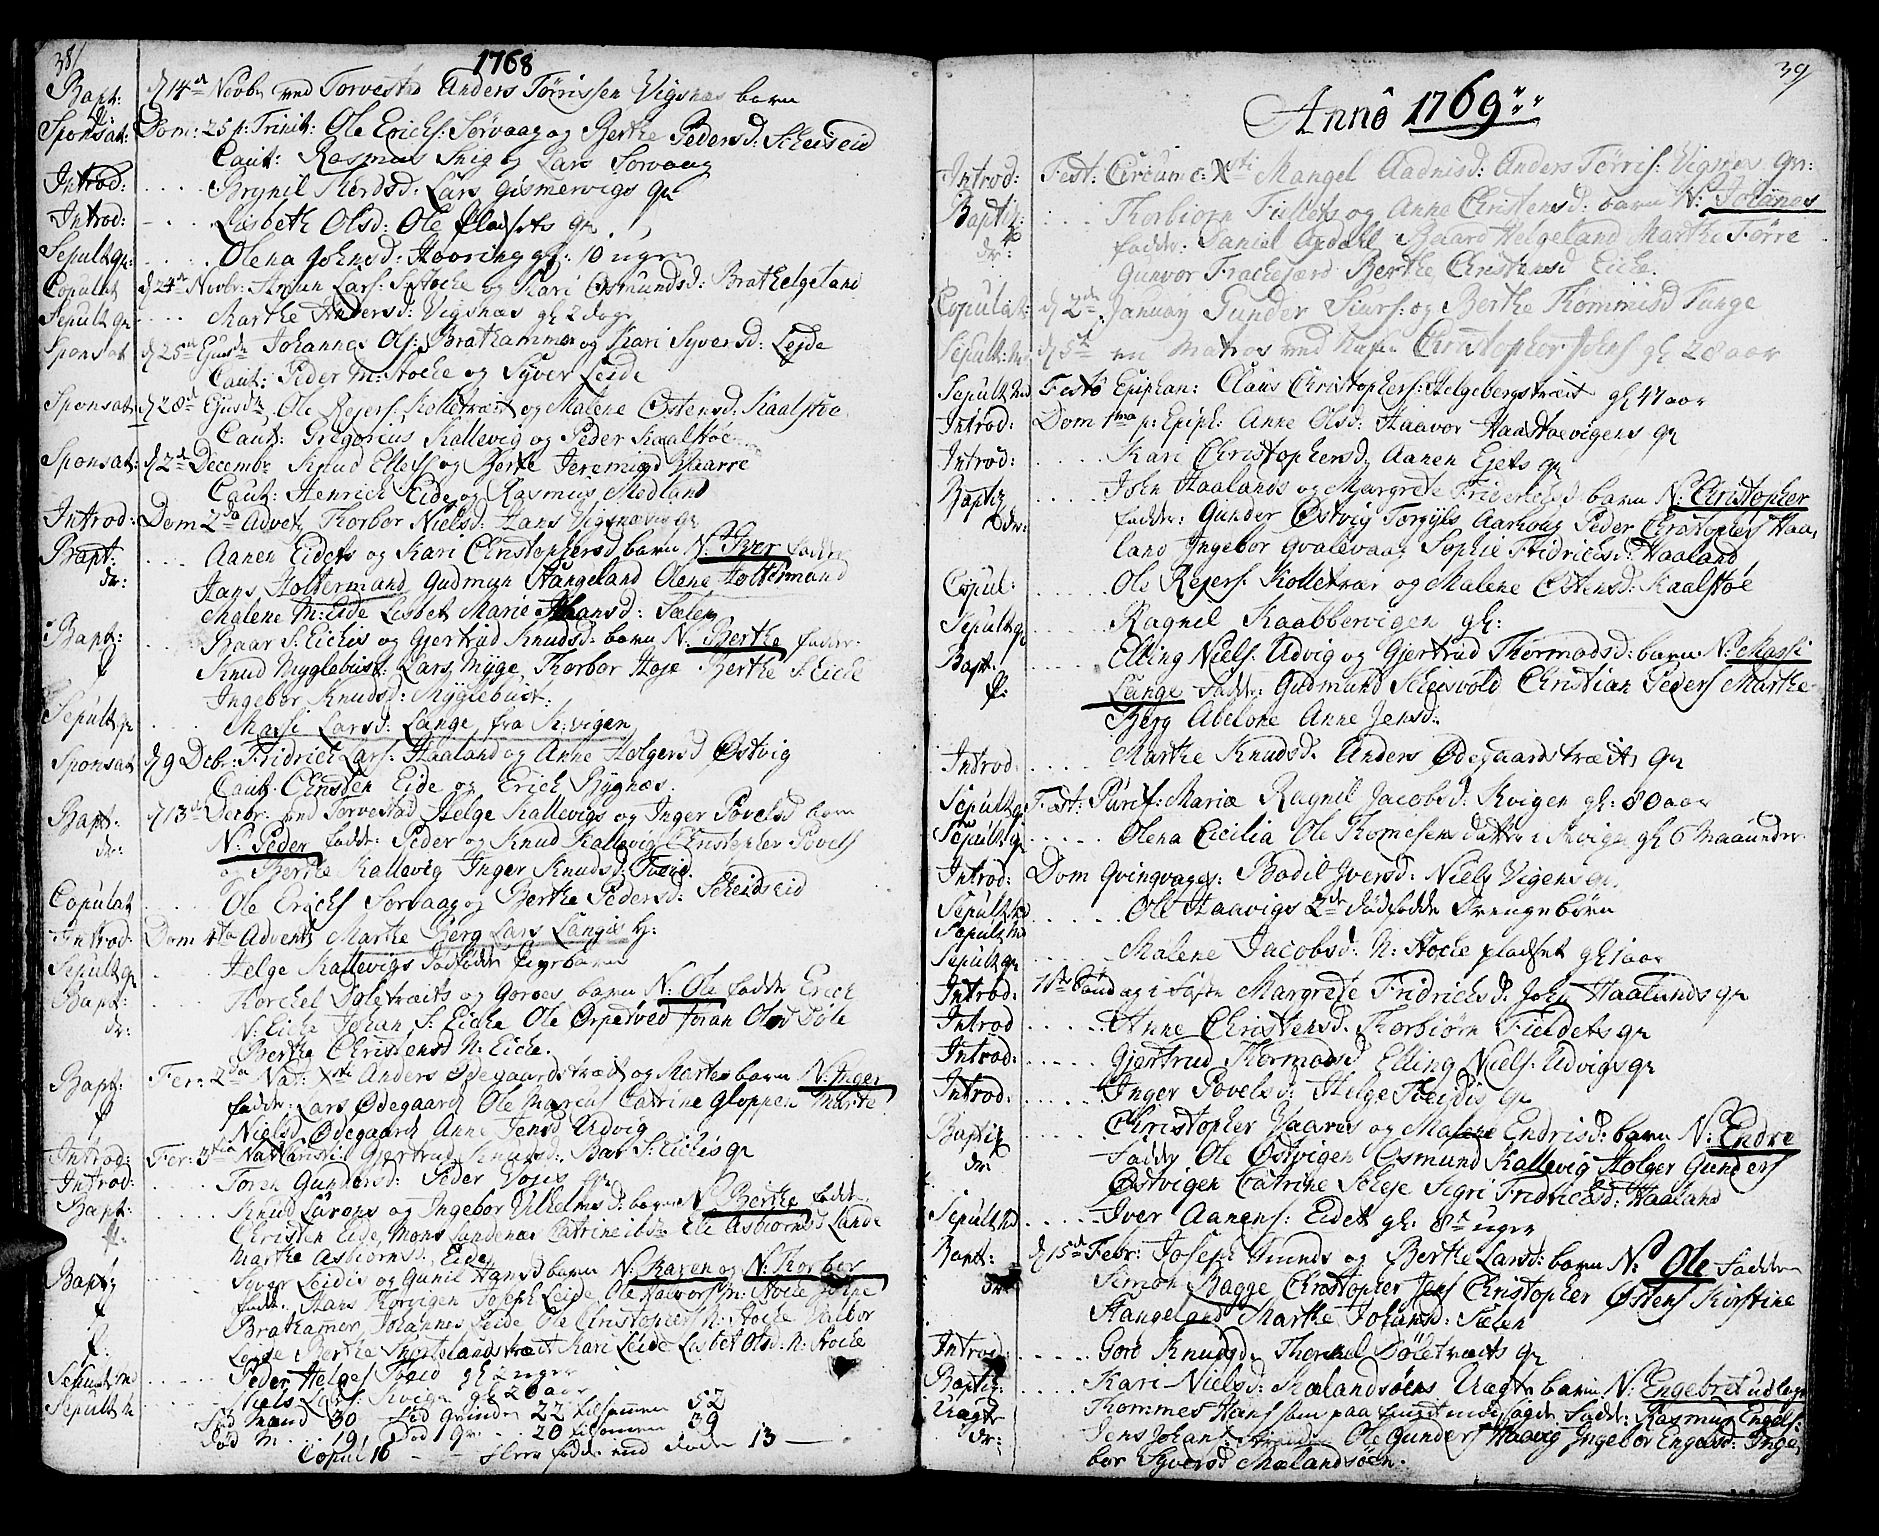 38/
1768
Bapt: d 14de Novbr ved Torvestad Anders Tørrissen Vigsnæs barn
Sponsat: Dom: 25 p: Trinit: Ole Erichs: Sørvaag og Berthe Peders d: Scheiseid
Caut: Rasmus Snig og Lars Sørvaag
Introd: .... Brynil Siurds d. Lars Gismervigs qv
Introd: .... Lisbeth Ols d: Ole Pladsets qv
Sepult qv: .... Olena Johns d: Haaring gl: 10 uger
Copulat d 24de Novbr: Amun Lars: S: Stocke og Kari Osmunds d: Brathelgeland
Sepult qv .... Marthe Anders d: Vigsnæs gl 2 dage
Sponsat d 25de Ejusde Johannes Ols: Brathammer og Kari Syvers d: Leide
Caut: Peder N: Stocke og Syver Leide
Sponsat d 28de Ejusde Ole Rejers: Kolletræit og Malene Østens d: Kaalstøe
Caut: Gregorius Kallevig og Peder Kaalstøe
Sponsat: d 2de Decembr Knud Ellefs og Berte Jeremias d Vaarre
Caut: Henrich Eide og Rasmus Medland
Introd: Dom 2da Advet Thorbor Niels d: Hans Vigsnæs qv
Bapt: .... Aanen Eidets og Kari Christophers d barn N: Iver fadder
dr: Hans Holtermand Gudmun Stangeland Olene Holtermand
Malene M: Eide Lisbet Marie Hans d: Sælen
Bapt: .... Baar S. Eickis og Gjertrud Knuds d: barn N. Berthe fadder.
Knud Myglebust Lars Myge Thorbor Høje Berthe S. Eicke
Ingebor Knuds d: Myglebust.
Sepult qv .... Massi Lars d: Lange fra K: vigen
Sponsat d 9 Debr: Fridrich Lars: Haaland og Anne Holgers d Østvig
Caut. Christen Eide og Erich Bygnæs.
Bapt: d 13de Decbr. ved Torvestad Helge Kallevigs og Inger Povels d barn
dr: N: Peder fadde: Peder og Knud Kallevig Christopher Povels
og Berthe Kallevig Inger Knuds d: Tveid.
Copulat .... Ole Erichs Sørvaag og Berthe Peders d: Scheidseid
Introd: Dom 4ta Advent Marthe Berg Lars Langis H:
Sepult qv . Helge Kallevigs dødfødde pigebarn
Bapt: Thorchel Døletræits og Goroes barn N: Ole fadde Erich
dr: N: Eicke Johan S: Eicke Ole Ørpetved Joran Ols d Døle
Berthe Christens d N: Eicke.
Bapt: Fer: 2da Nat: Xsti Anders Ødegaards træt og Martes barn N: Inger
fadde: Lars Ødegaard Ole Marcus Catrine Gloppen Marte
Niels d Ødegaard Anne Jens d Udvig
Introd: Fer: 3tia Nat: Gjertrud Knuds d: Bar S: Eickis qv
Introd: .... Toren Gunders d: Peder Vojes qv
Bapt: .... Knud Larsens og Ingebor Vilhelms d: barn N. Berthe fadde.
Christen Eide, Mons Sundenæs Catrine Ole Asbiørns d Lande
Marthe Asbiørns d. Eide
Bapt: Syver Leidis og Gunil Hans d barn N: Karen og N: Thorber
fadde. Hans Thorvigen Joseph Leide Ole Halvors: N: Stocke
Brathamer, Johannes Leide Ole Christophers N: Stocke Valbor
Leide Berthe Kari Leide Lisbet Ols d. N: Stocke
Sepult m .... Peder Helges Tveid gl 2 uger
Sepult m Niels Lars: Kvigen gl 20 aar
Fød Mand 30 - Fød Qvinde 22 tilsamen 52
Død M. .. 19 Død Qv: .. 20 tilsamen 39
Copul 10 - - flere fødde end døde 13 —
39/
Anno 1769
Introd: Fest: Circumc: Xsti Mangel Aadnis d: Anders Tørris: Vigsnæs qv:
Baptiz .... Thorbiørn Fieldets og Anne Christens d: barn N: Johannes
dr: fadde: Daniel Apdall Baard Helgeland Marthe Førre
Gunvor Frackefierd Berthe Christens d Eicke.
Copulat: d 2de Januarj Gunder Siurs: og Berthe Thommis d Tunge
Sepult: m d 5te en Matros ved Navn Christopher Jens gl 28 aar
Sepult m Festo Epiphan: Claus Christophers: Helgebergstræit gl 47 aar
Introd: Dom 1ma p: Epiph: Anne Ols d: Haavor Haastoevigens qv
Introd: .... Kari Christophers d. Aanen Ejets qv
Baptiz .... John Haalands og Margrete Friderichs d barn N: Christopher
dr: fadde: Gunder Østvig Torgils Aarhoug Peder Christophers Haa,
land Ingebor Qvalevaag Sophie Fridrichs d: Haaland
Copul: .... Ole Rejers: Kolletræe og Malene Østens d: Kaalstøe
Sepult qv .... Ragnil Kaabbervigen gl:
Bapt: .... Elling Niels: Udvig og Gjertrud Thormods d: barn N: Massi
p: Lange fadde: Gudmund Scheisvold Christian Peders Marthe
Berg Abelone Anne Jens d:
Introd: .... Marthe Knuds d. Anders Ødegaardstræits qv
Sepult qv Fest: Purif: Mariæ Ragnil Jacobs d: Kvigen gl: 80 aar
Sepult qv .... Olena Cicilia Ole Thomesens datter i Kvigen gl 6 Maaunder
Introd: Dom Qvinqvages: Bodil Ivers d: Niels Vigens qv.
Sepult m .... Ole Haavigs 2de dødfødde Drengebørn
Sepult m
Sepult qv .... Malene Jacobs d: N: Stocke pladset gl 1 aar
Introd: 1ste Søndag i Faste Margrete Fridrichs d. John Haalands qv
Introd .... Anne Christens d. Thorbiørn Fieldets qv
Introd: .... Gjertrud Thormods d Elling Niels: Udvigs qv
Introd: .... Inger Povels d: Helge Tveidis qv
Baptiz .... Christopher Vaares og Malene Endris d: barn N: Endre
dr: fadde Ole Østvigen Osmund Kallevig Holger Gunders
Østvigen Catrine Scheje Segri Fridrichs d: Haaland
Sepult m .... Iver Aanens: Eidet gl: 8te uger
Bapt: d 15de Febr: Joseph Munds og Berthe Lars d: barn N: Ole fadder
dr: Simon Bagge Christopher Jens Christopher Østens Kirstine
Stangeland Marthe Johans d: Sælen
Introd: .... Goro Knuds d. Thorchel Døletræits qv
Baptiz: .... Kari Niels d: Mælandsøens Uægte barn N: Engebret udlagt
Uægte Thommes Hans som paa fader fadd: Rasmus Engels:
dr: Jens Johans: Ole Gunders Haavig Ingebor Engels d: Inge,
bor Syvers d Mælandsøen.